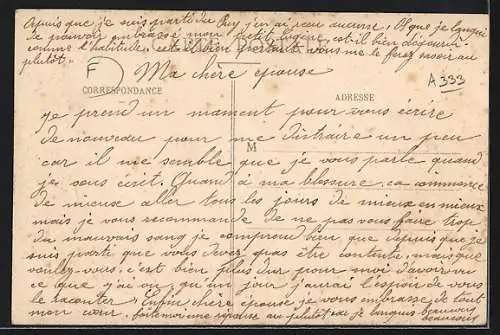 depuis que je suis parti du Puy j'en ai reçu aucune, Et que je languis
de pouvoir embrasser mon petit Eugène, est-il bien dégourdi
comme l'habitude, est-il bien portant vous me le ferez savoir au
plutôt."
F
Ma chère épouse
A 333
CORRESPONDANCE
ADRESSE
je prend un moment pour vous écrire
de nouveau pour me distraire un peu
M
car il me semble que je vous parle quand
je vous écrit. Quand à ma blessure, ca commence
de mieux aller tous les jours de mieux en mieux
mais je vous recommande de ne pas vous faire trop
du mauvais sang je comprend bien que depuis que je
suis parti que vous devez pas être contente, mais que
voulez-vous, c'est bien plus dur pour moi d'avoir vu
ce que j'ai vu, qu'un jour j'aurai l'espoir de vous
le raconter. Enfin chère épouse je vous embrasse de tout
mon cœur. faites-moi une réponse au plutôt car je languis beaucoup
beaucoup